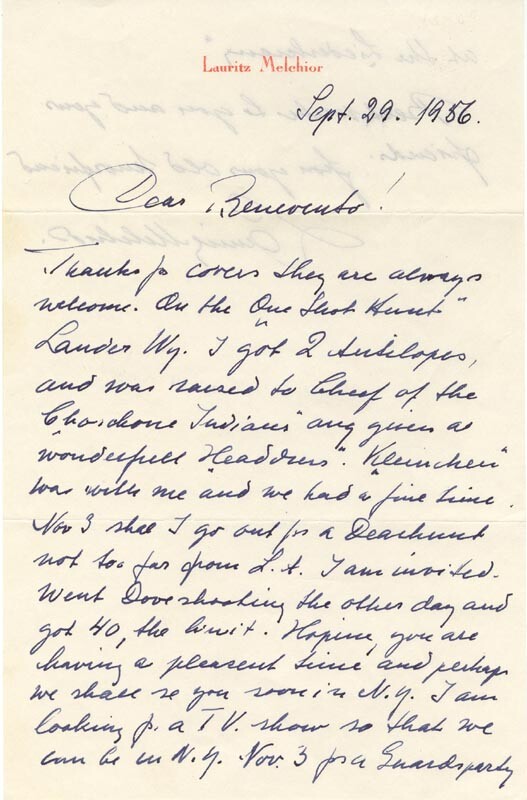 Lauritz Melchior
Sept. 29. 1956.
Dear Benevento!
Thanks fo covers they are always
welcome. On the "One Shot Hunt"
Lander Wy. I got 2 Antilopes,
and was raised to Cheef of the
Choschone Indians" ang given a
wonderfull Headdress". "Kleinchen"
was with me and we had a fine time.
Nov 3 shal I go out fo a Dearhunt
not too far from L.A. I am invited.
Went Doveshooting the other day and
got 40, the limit. Hoping you are
having a pleasent time and perhaps
we shall se you soon in N.Y. I am
looking fo. a T.V. show so that we
can be in N.Y. Nov. 3 fo a Guardsparty